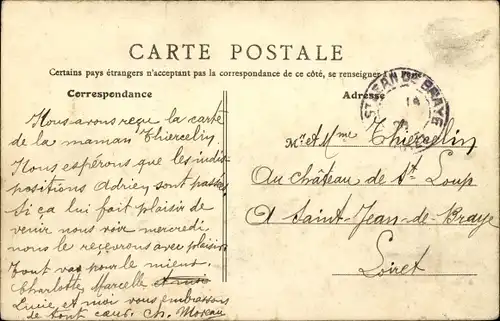 CARTE POSTALE
Certains pays étrangers n'acceptant pas la correspondance de ce côté, se renseigner à la
Correspondance
Adresse
ST JEAN DE BRAYE
14
Nous avons reçu la carte
de la maman Thiercelin
Nous espérons que les indis-
positions Adrien sont passées
Si ça lui fait plaisir de
venir nous voir mercredi
nous le reçevrons avec plaisir
Tout va pour le mieux.
Charlotte Marcelle et moi
Lucie et moi vous embrassons
de tout cœur. Ch. Moreau
Mr et Mme Thiercelin
Au château de St Loup
A Saint-Jean-de-Braye
Loiret